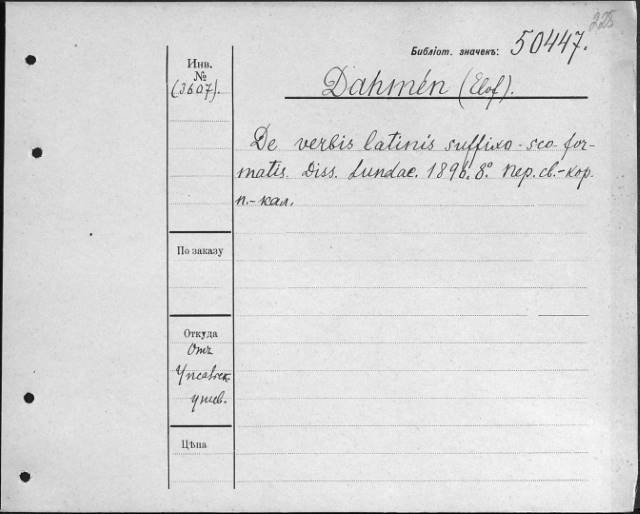 225
Библіот. значекъ: 50447.
Инв.
№
(3607).
Dahmén (Elof).
De verbis latinis suffixo -sco- for-
matis. Diss. Lundae. 1896. 8° пер. св.-кор.
п.-кал.
По заказу
Откуда
Отъ
Упсальск.
унив.
Цѣна